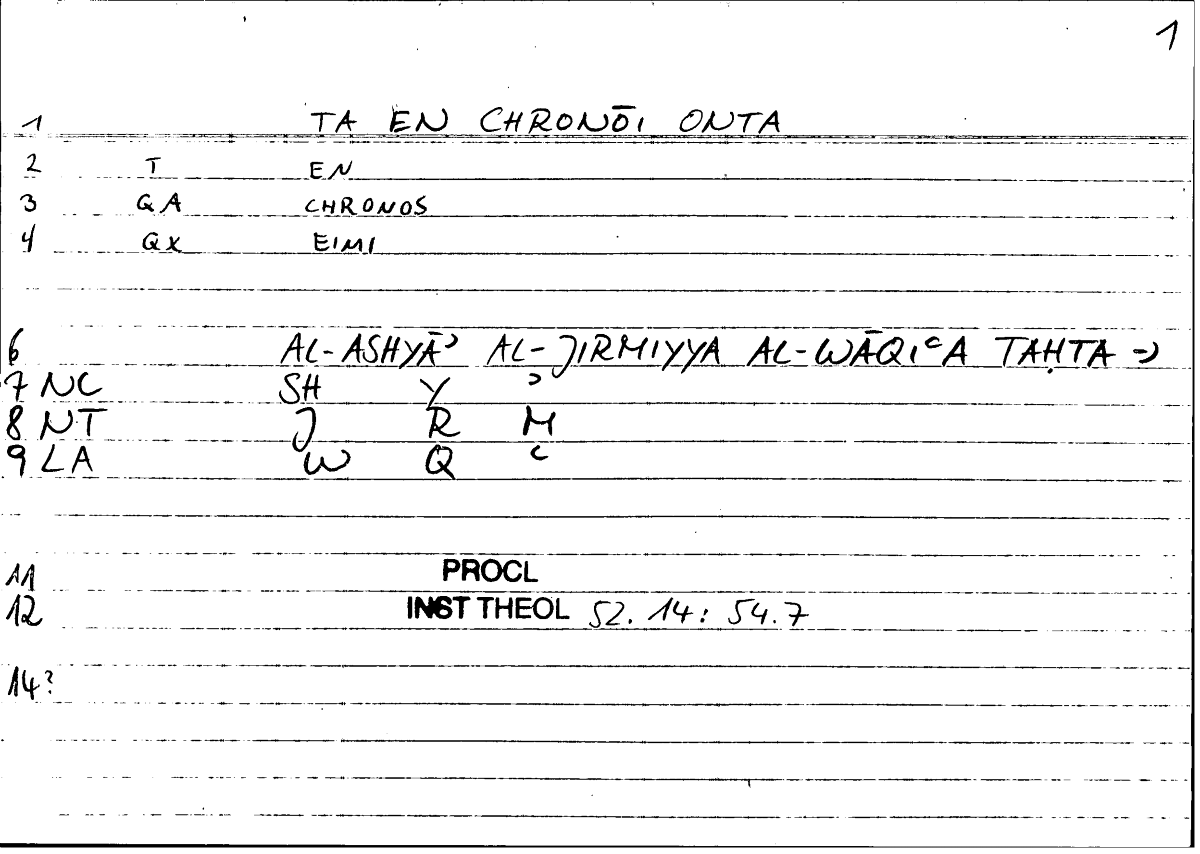 1
1 TA EN CHRONŌI ONTA
2 T EN
3 QA CHRONOS
4 QX EIMI
6 AL-ASHYĀʾ AL-JIRMIYYA AL-WĀQIʿA TAḤTA =)
7 NC SH Y ʾ
8 NT J R M
9 LA W Q ʿ
11 PROCL
12 INST THEOL 52. 14: 54.7
14?